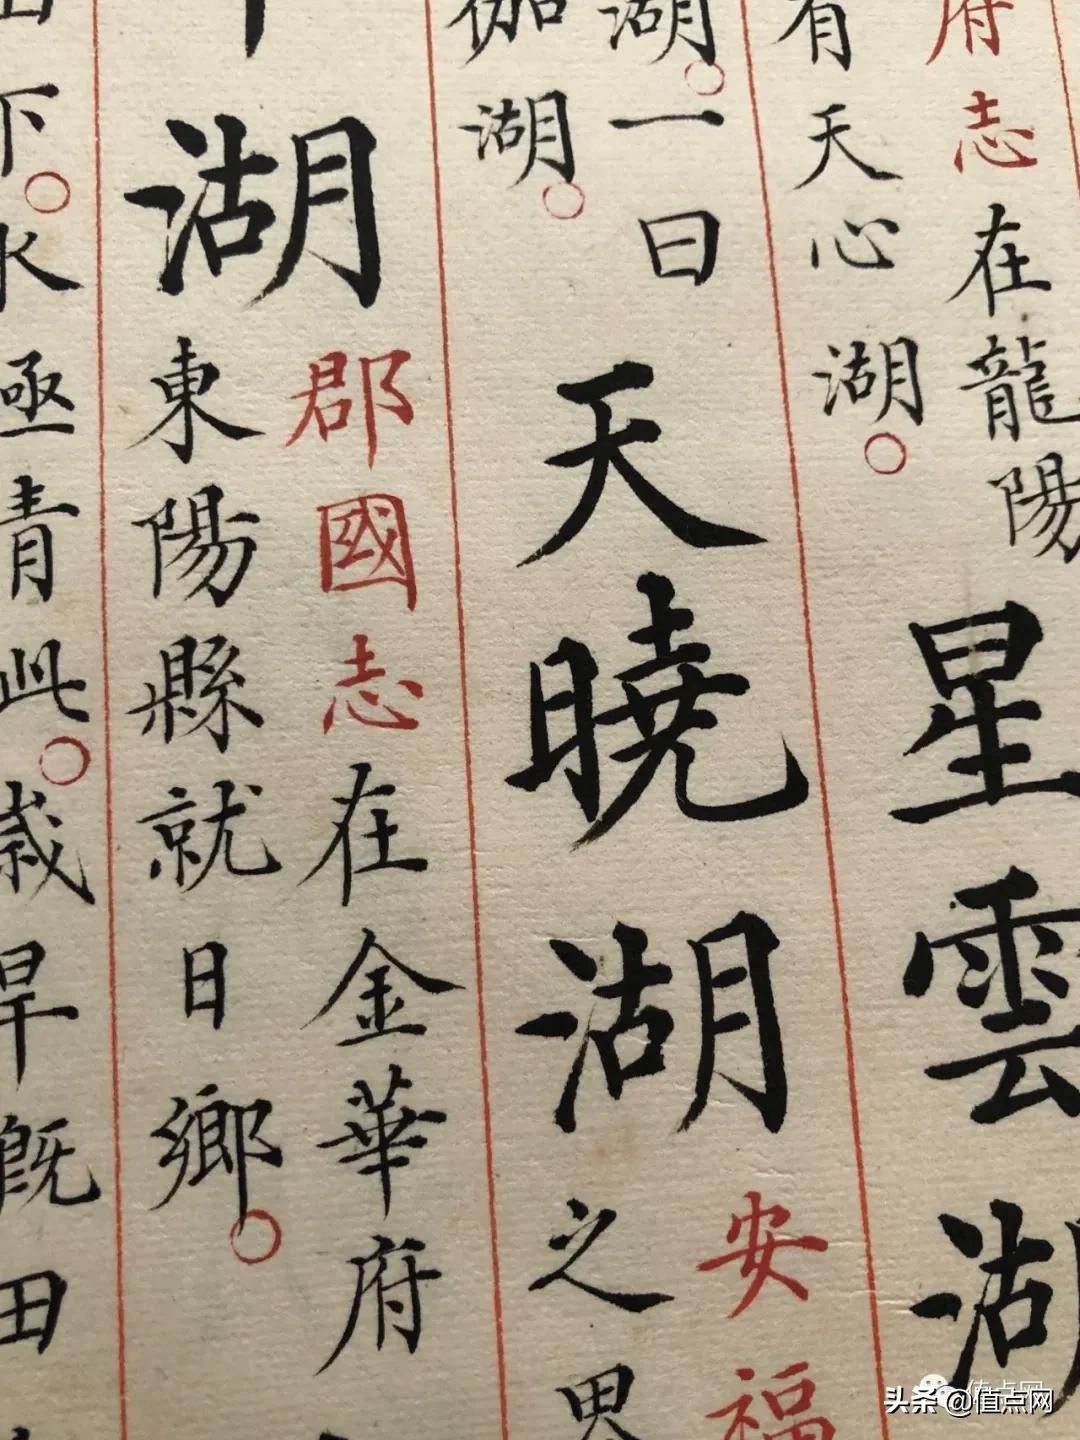 府志在龍陽
有天心湖
星雲湖
湖一曰
伽湖
天曉湖
安福
之界
湖
郡國志在金華府
東陽縣就日鄉
下水極青此歲旱既田
头条@值点网